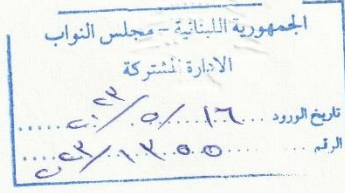 الجمهورية اللبنانية – مجلس النواب
الادارة المشتركة
تاريخ الورود ١٦/٥/٢٠٢٣
الرقم ١٣٥٥/٢٠٢٣